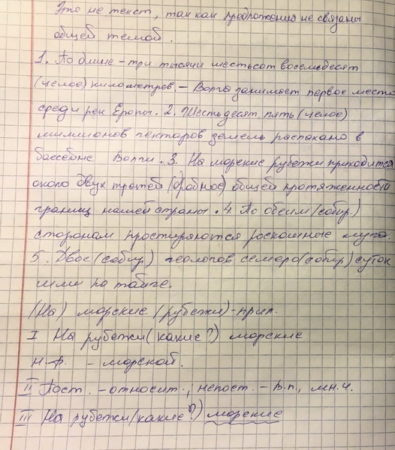 Это не текст, так как предложения не связаны
общей темой.
1. По длине - три тысячи шестьсот восемьдесят
(целое) километров - Волга занимает первое место
среди рек Европы. 2. Шестьдесят пять (целое)
миллионов гектаров земель распахано в
бассейне Волги. 3. На морские рубежи приходится
около двух третей (дробное) общей протяженности
границ нашей страны. 4. По обеим (собир)
сторонам простираются роскошные луга.
5. Двое (собир) геологов семеро (собир) суток
шли по тайге.
(На) морские (рубежи) - прил.
I На рубежи (какие?) морские
Н.ф. - морской.
II Пост. - относит.; непост. - в.п., мн.ч.
III На рубежи (какие?) морские